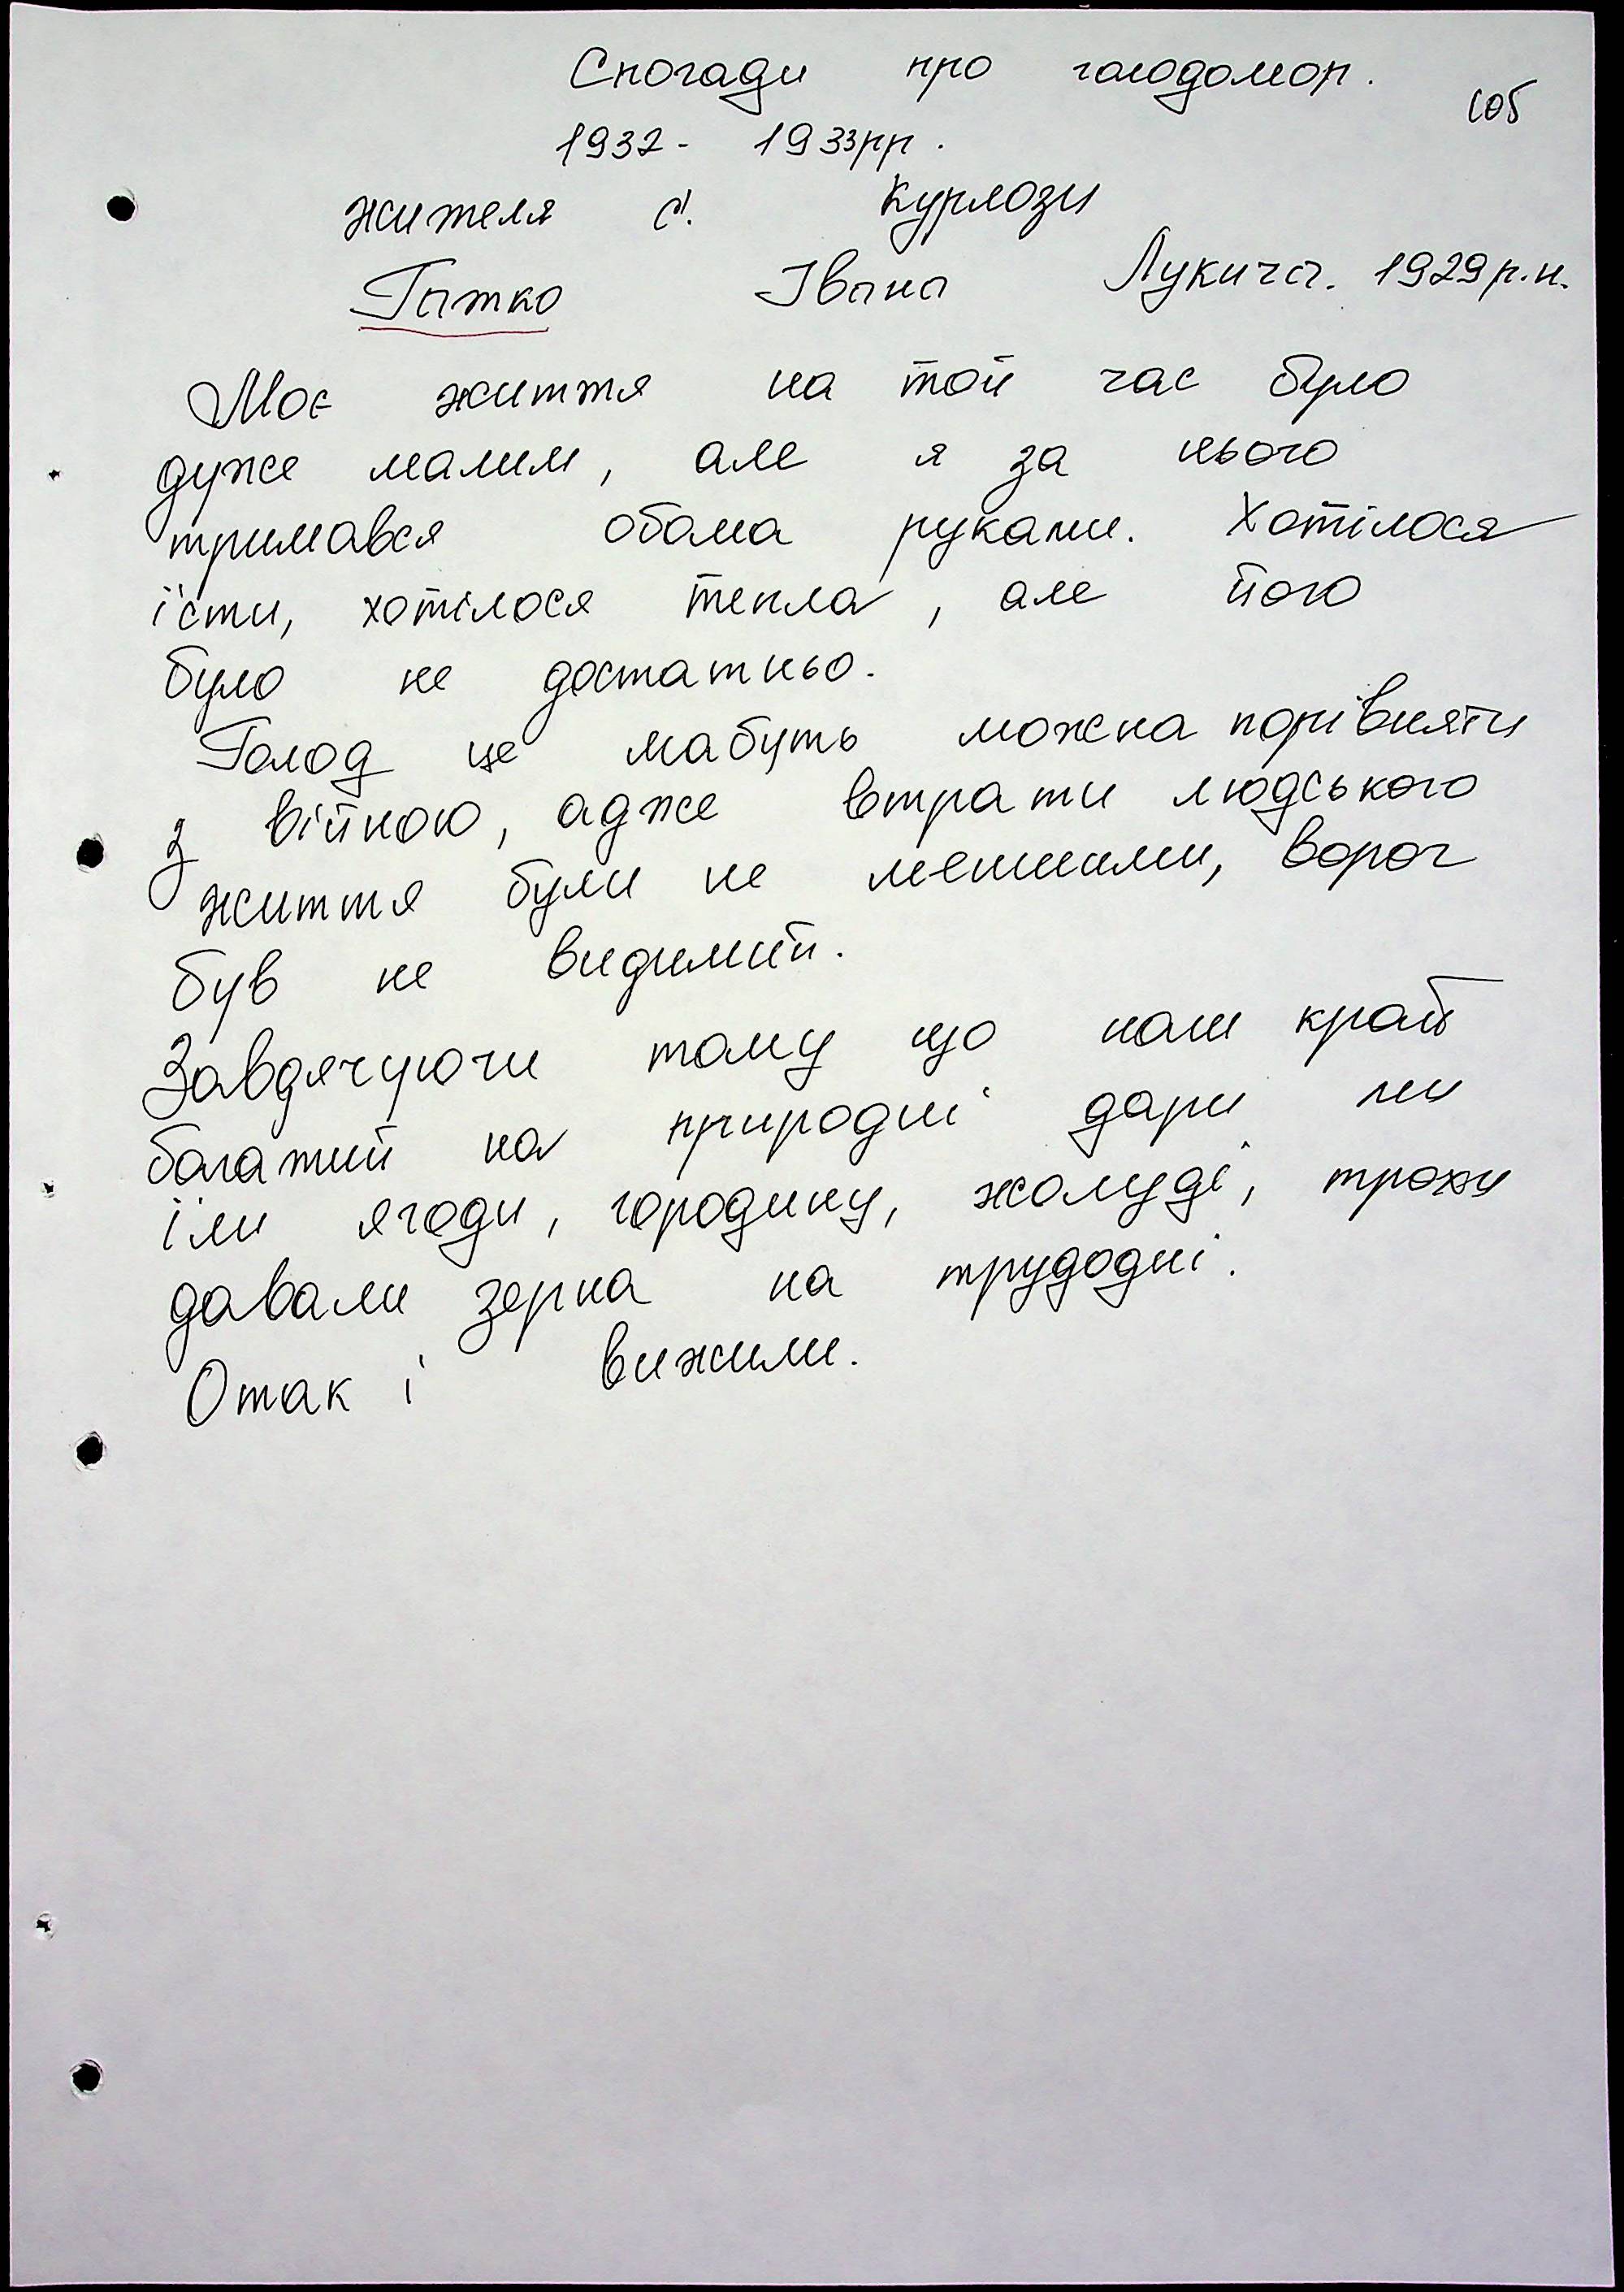 Спогади про голодомор.
105
1932 - 1933рр.
жителя с. Курлози
Гатко Івана Лукича. 1929р.н.
Моє життя на той час було
дуже малим, але я за нього
тримався обома руками. Хотілося
їсти, хотілося тепла, але його
було не достатньо.
Голод це мабуть можна порівняти
з війною, адже втрати людського
життя були не меншими, ворог
був не видимий.
Завдячуючи тому що наш край
багатий на природні дари ми
їли ягоди, городину, жолуді, трохи
давали зерна на трудодні.
Отак і вижили.